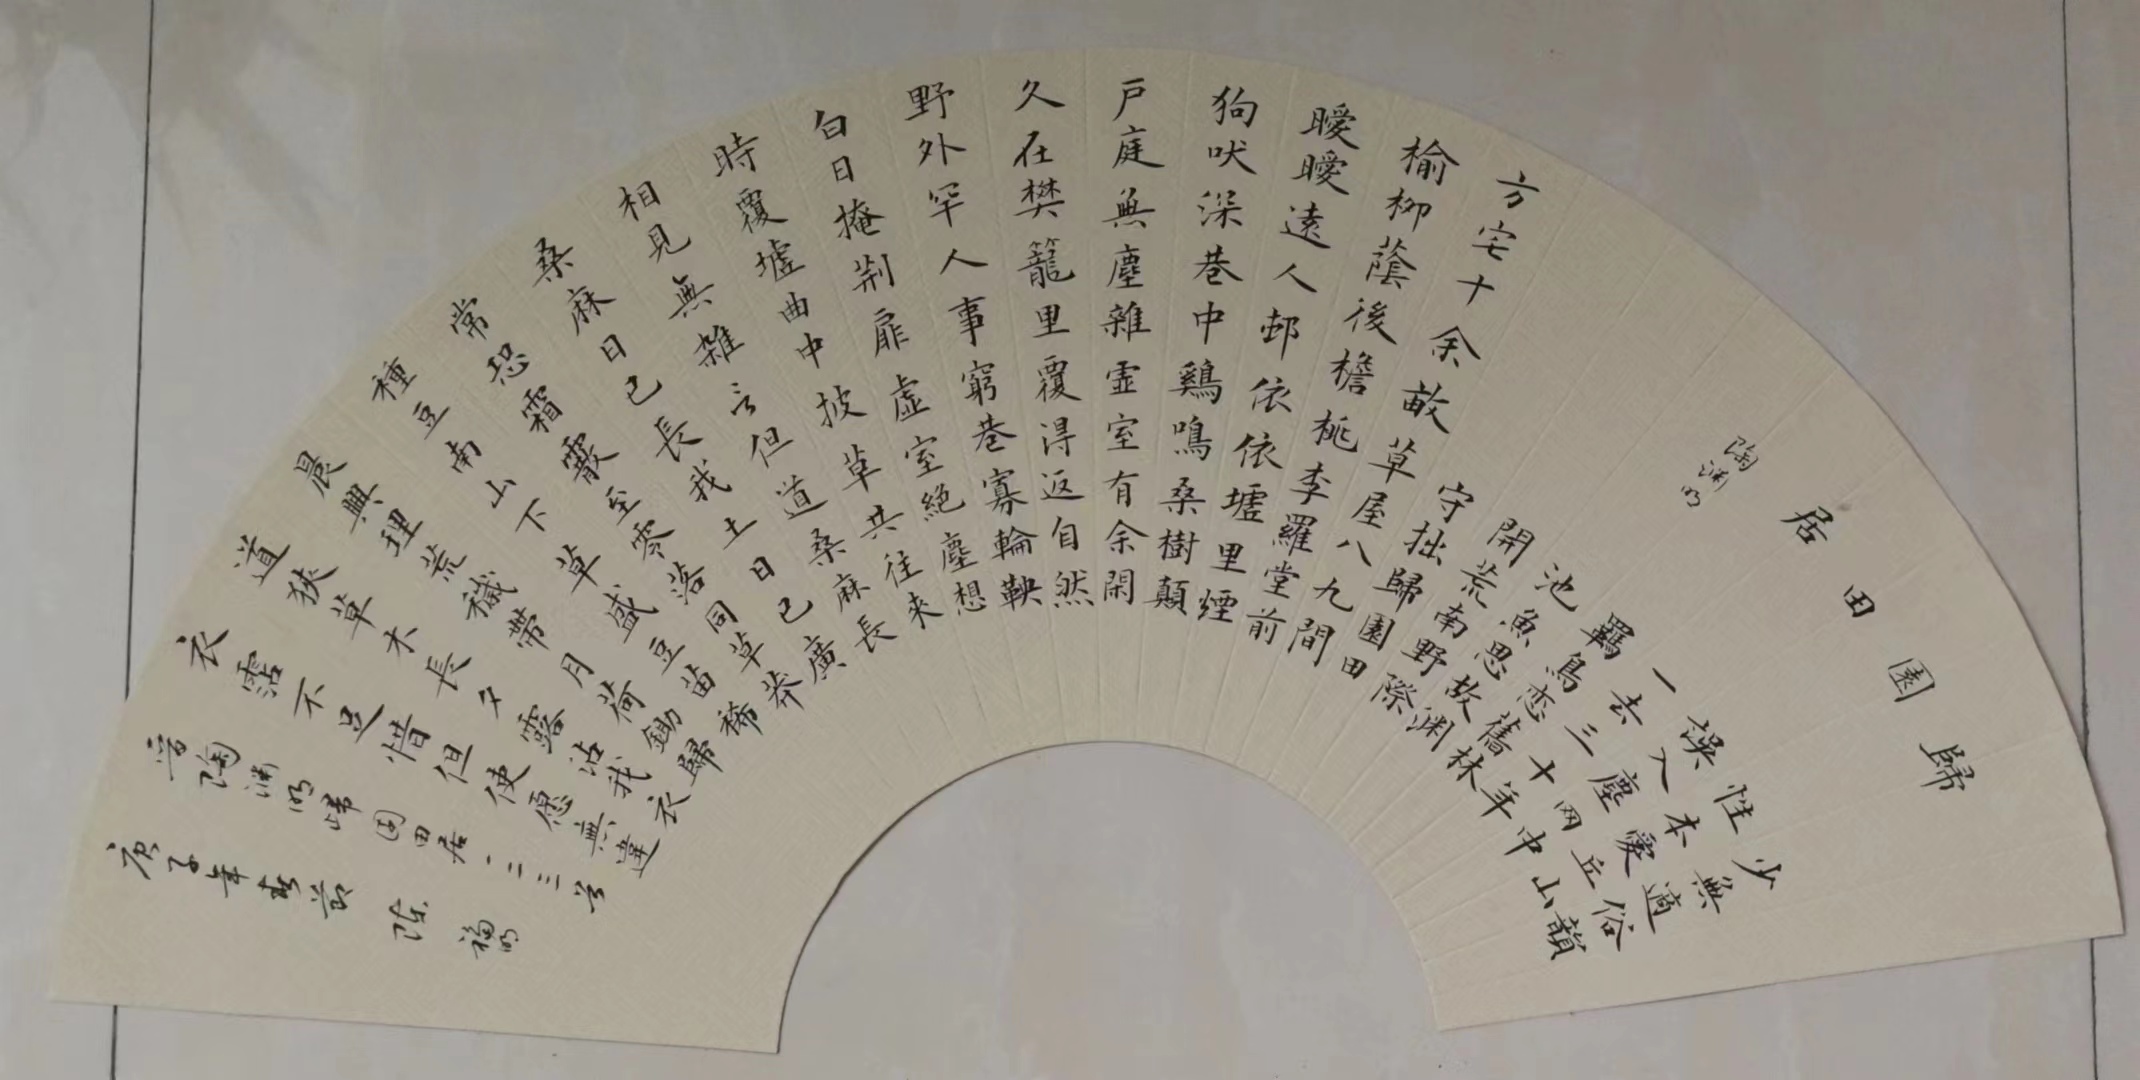 歸園田居
陶渊明
少無適俗韻
性本愛丘山
誤入塵网中
一去三十年
羈鳥恋舊林
池魚思故渊
開荒南野際
守拙歸園田
方宅十余畝草屋八九間
榆柳蔭後檐桃李羅堂前
曖曖遠人邨依依墟里煙
狗吠深巷中鷄鳴桑樹顛
戶庭無塵雜虚室有余閑
久在樊籠里覆得返自然
野外罕人事窮巷寡輪鞅
白日掩荆扉虚室絕塵想
時覆墟曲中披草共往来
相見無雜言但道桑麻長
桑麻日已長我土日已廣
常恐霜霰至零落同草莽
種豆南山下草盛豆苗稀
晨興理荒穢帶月荷鋤歸
道狹草木長夕露沾我衣
衣霑不足惜但使愿無違
晋陶渊明歸園田居一二三首
庚子年春節 陈福明